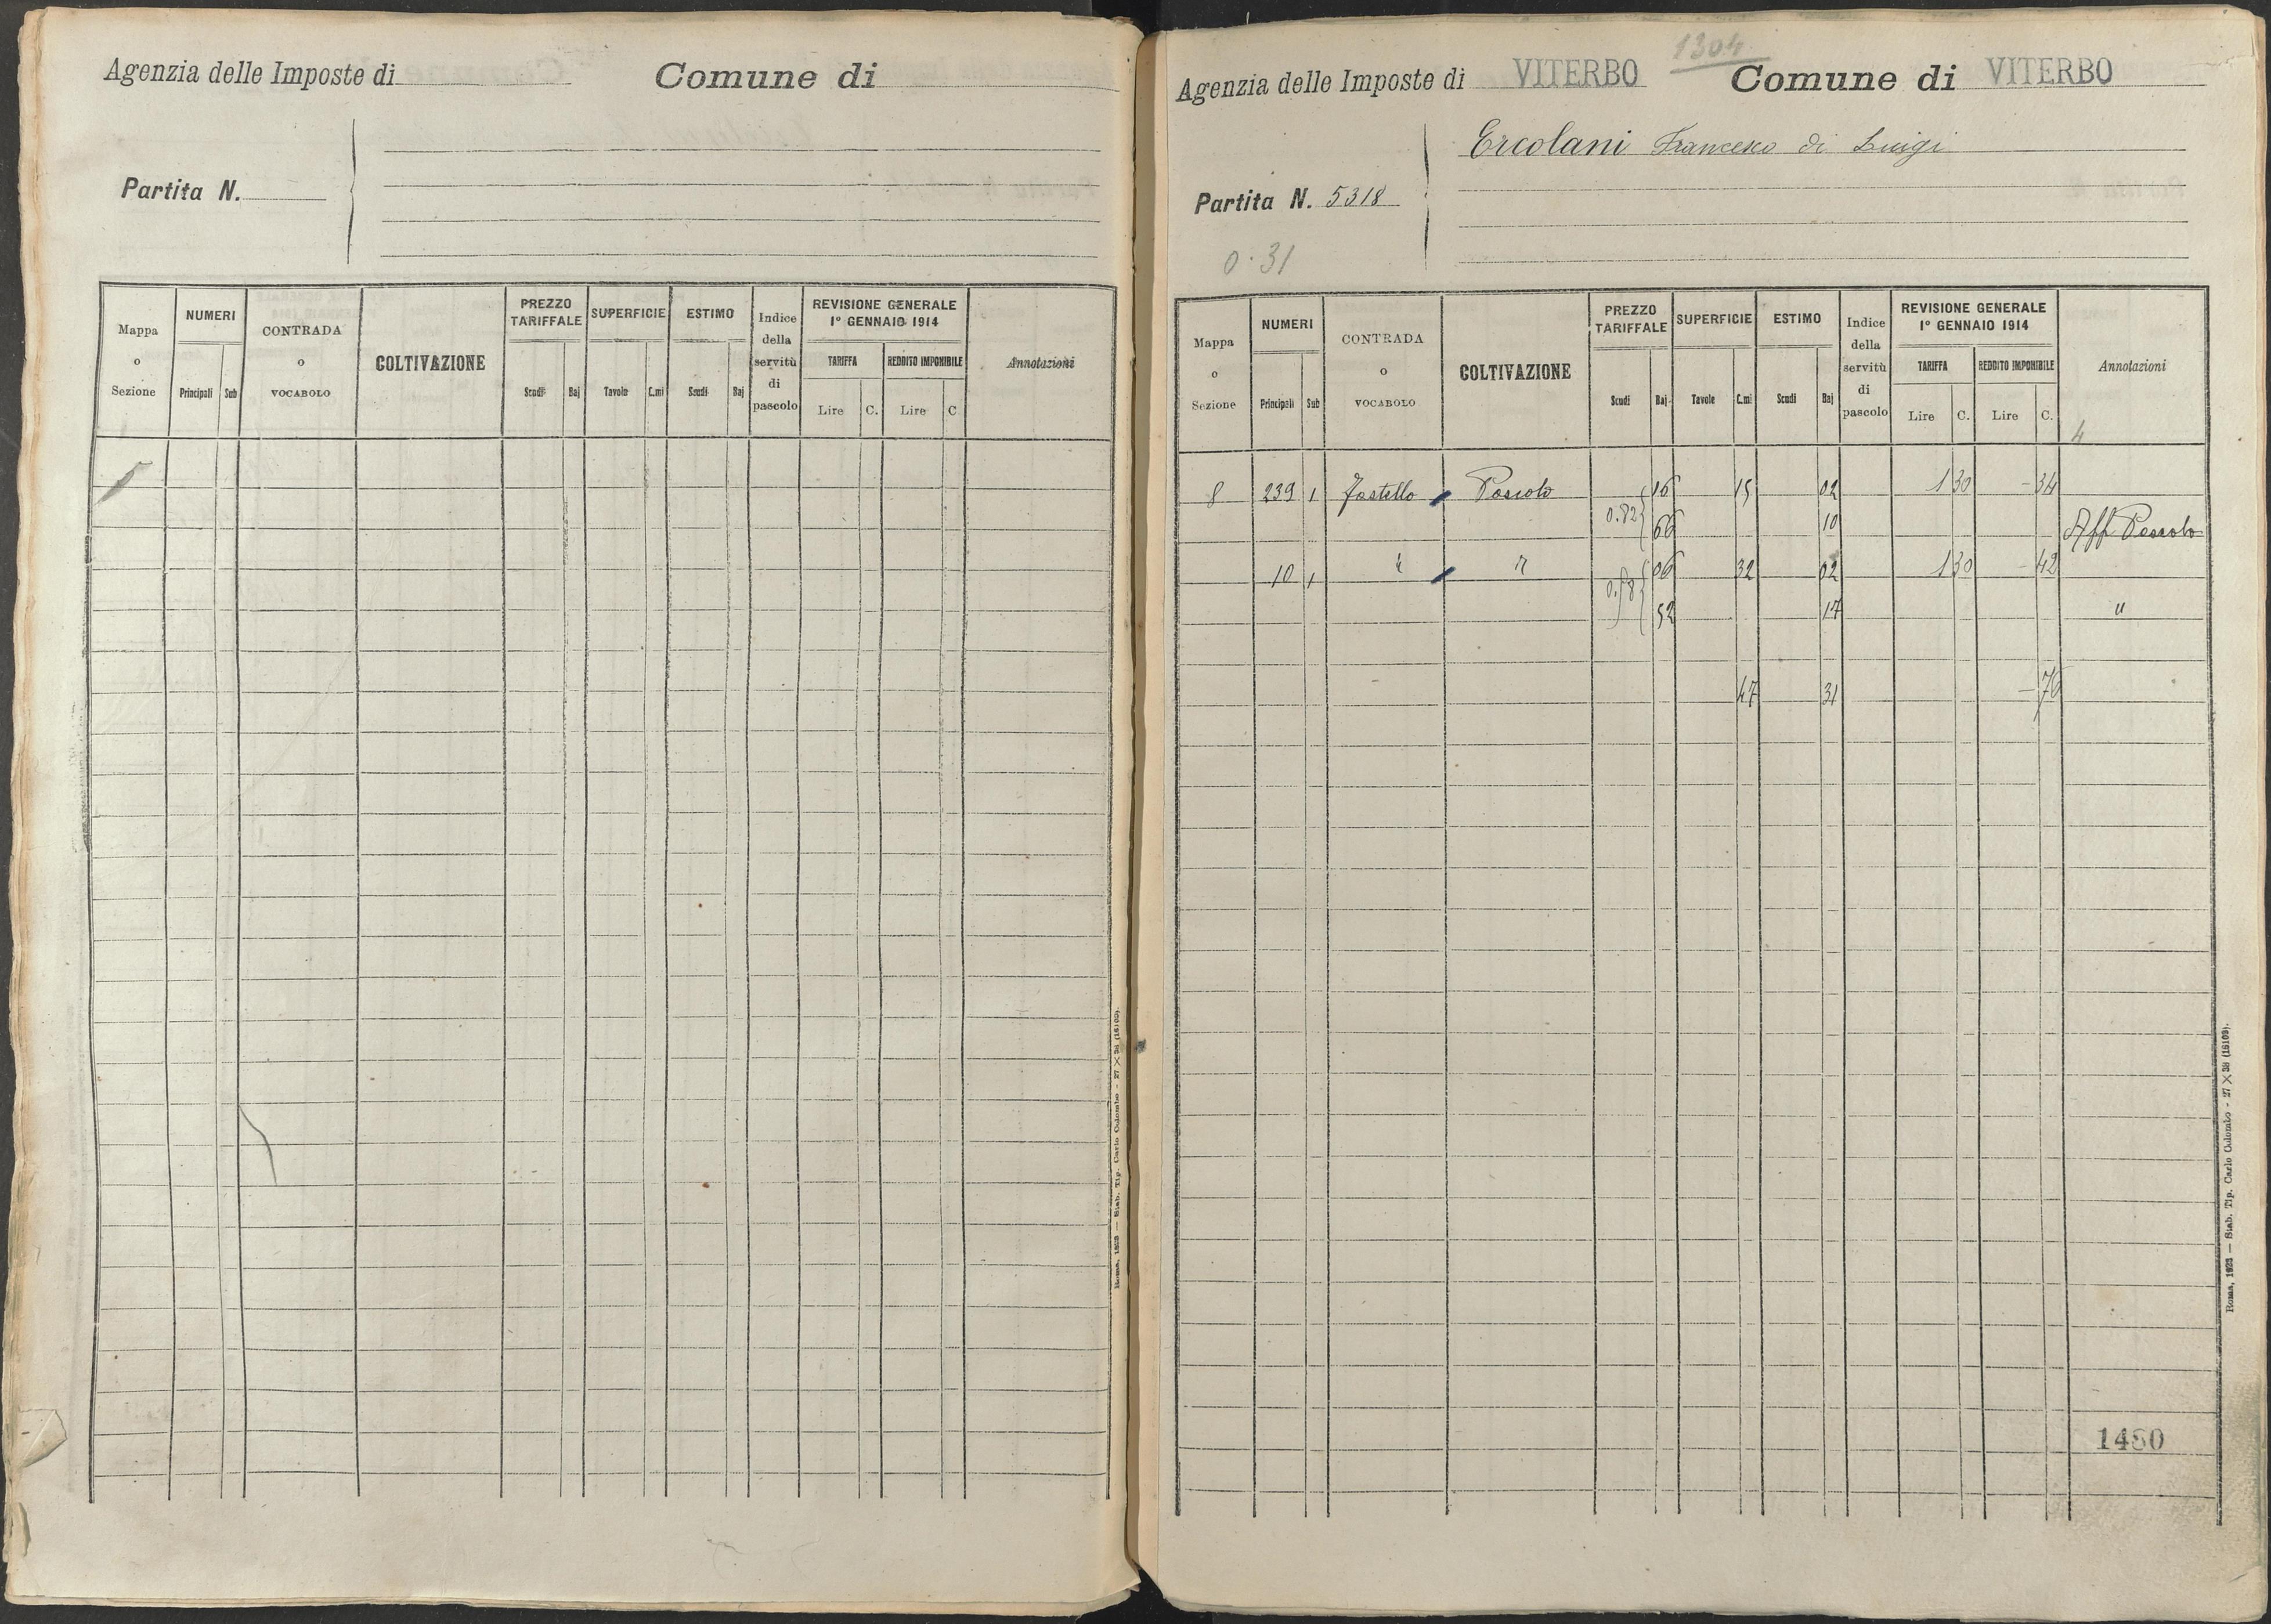 Agenzia delle Imposte di Comune di
Partita N.
Mappa o Sezione
NUMERI
Principali Sub
CONTRADA o VOCABOLO
COLTIVAZIONE
PREZZO TARIFFALE
Scudi Baj
SUPERFICIE
Tavole C.mi
ESTIMO
Scudi Baj
Indice della servitù di pascolo
REVISIONE GENERALE
1° GENNAIO 1914
TARIFFA REDDITO IMPONIBILE
Lire C. Lire C
Annotazioni
Roma, 1923 — Stab. Tip. Carlo Colombo - 27 × 38 (16109).
1304
Agenzia delle Imposte di VITERBO Comune di VITERBO
Ercolani Francesco di Luigi
Partita N. 5318
0.31
Mappa o Sezione
NUMERI
Principali Sub
CONTRADA o VOCABOLO
COLTIVAZIONE
PREZZO TARIFFALE
Scudi Baj.
SUPERFICIE
Tavole C.mi
ESTIMO
Scudi Baj
Indice della servitù di pascolo
REVISIONE GENERALE
1° GENNAIO 1914
TARIFFA REDDITO IMPONIBILE
Lire C. Lire C.
Annotazioni
4
8 239 1 Fastello Pascolo 16 15 02 1 30 - 34
0.82 66 10 Aff Pascolo
10 1 " " 06 32 02 1 30 - 42
0.58 52 17 "
47 31 - 76
1480
Roma, 1923 — Stab. Tip. Carlo Colombo - 27 × 38 (16109).